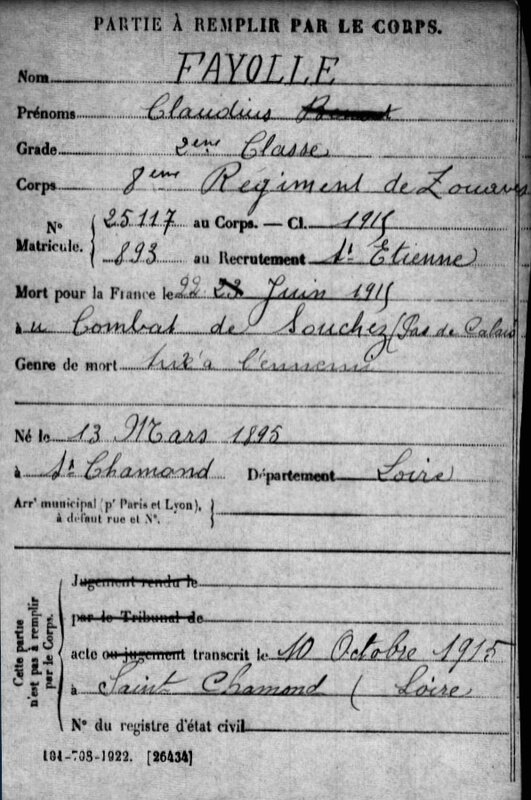 PARTIE À REMPLIR PAR LE CORPS.
Nom FAYOLLE
Prénoms Claudius
Grade 2eme Classe
Corps 8eme Régiment de Zouaves
N° Matricule. 25117 au Corps. — Cl. 1915
893 au Recrutement St Etienne
Mort pour la France le 22 23 Juin 1915
à u Combat de Souchez (Pas de Calais
Genre de mort tué à l'ennemi
Né le 13 Mars 1895
à St Chamond Département Loire
Arrt municipal (pr Paris et Lyon),
à défaut rue et N°.
Cette partie n'est pas à remplir par le Corps.
Jugement rendu le
par le Tribunal de
acte ou jugement transcrit le 10 Octobre 1915
à Saint Chamond ( Loire
N° du registre d'état civil
101-708-1922. [26434]